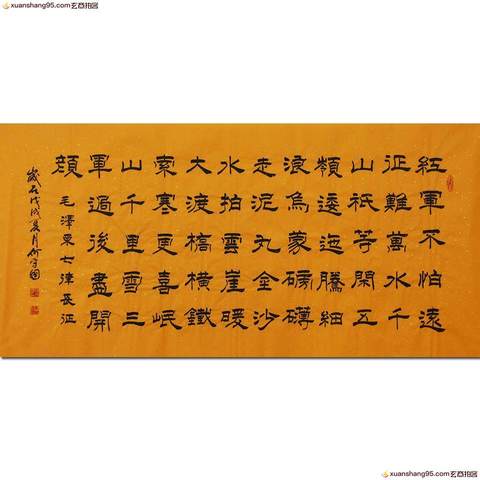 xuanshang95.com玄商拍图
紅軍不怕遠
征難萬水千
山祇等閑五
嶺逶迤騰細
浪烏蒙磅礴
走泥丸金沙
水拍雲崖暖
大渡橋橫鐵
索寒更喜岷
山千里雪三
軍過後盡開
顏
毛澤東七律長征
歲在戊戌夏月
xuanshang95.com玄商拍图